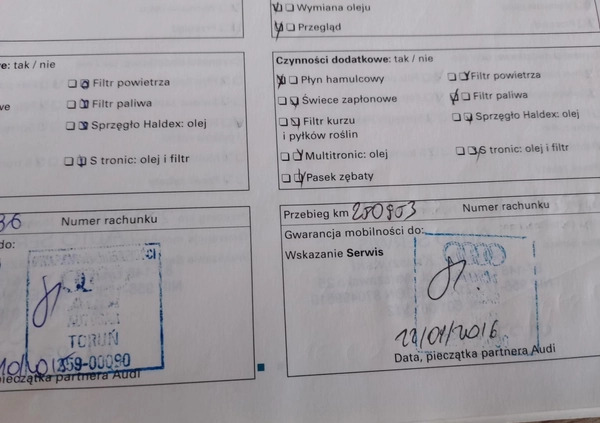 Wymiana oleju
Przegląd
e: tak / nie
Filtr powietrza
Filtr paliwa
Sprzęgło Haldex: olej
S tronic: olej i filtr
Numer rachunku
do:
TORUŃ
359-00090
pieczątka partnera Audi
Czynności dodatkowe: tak / nie
Płyn hamulcowy
Filtr powietrza
Świece zapłonowe
Filtr paliwa
Filtr kurzu
i pyłków roślin
Sprzęgło Haldex: olej
Multitronic: olej
S tronic: olej i filtr
Pasek zębaty
Przebieg km 250953 Numer rachunku
Gwarancja mobilności do:
Wskazanie Serwis
Data, pieczątka partnera Audi